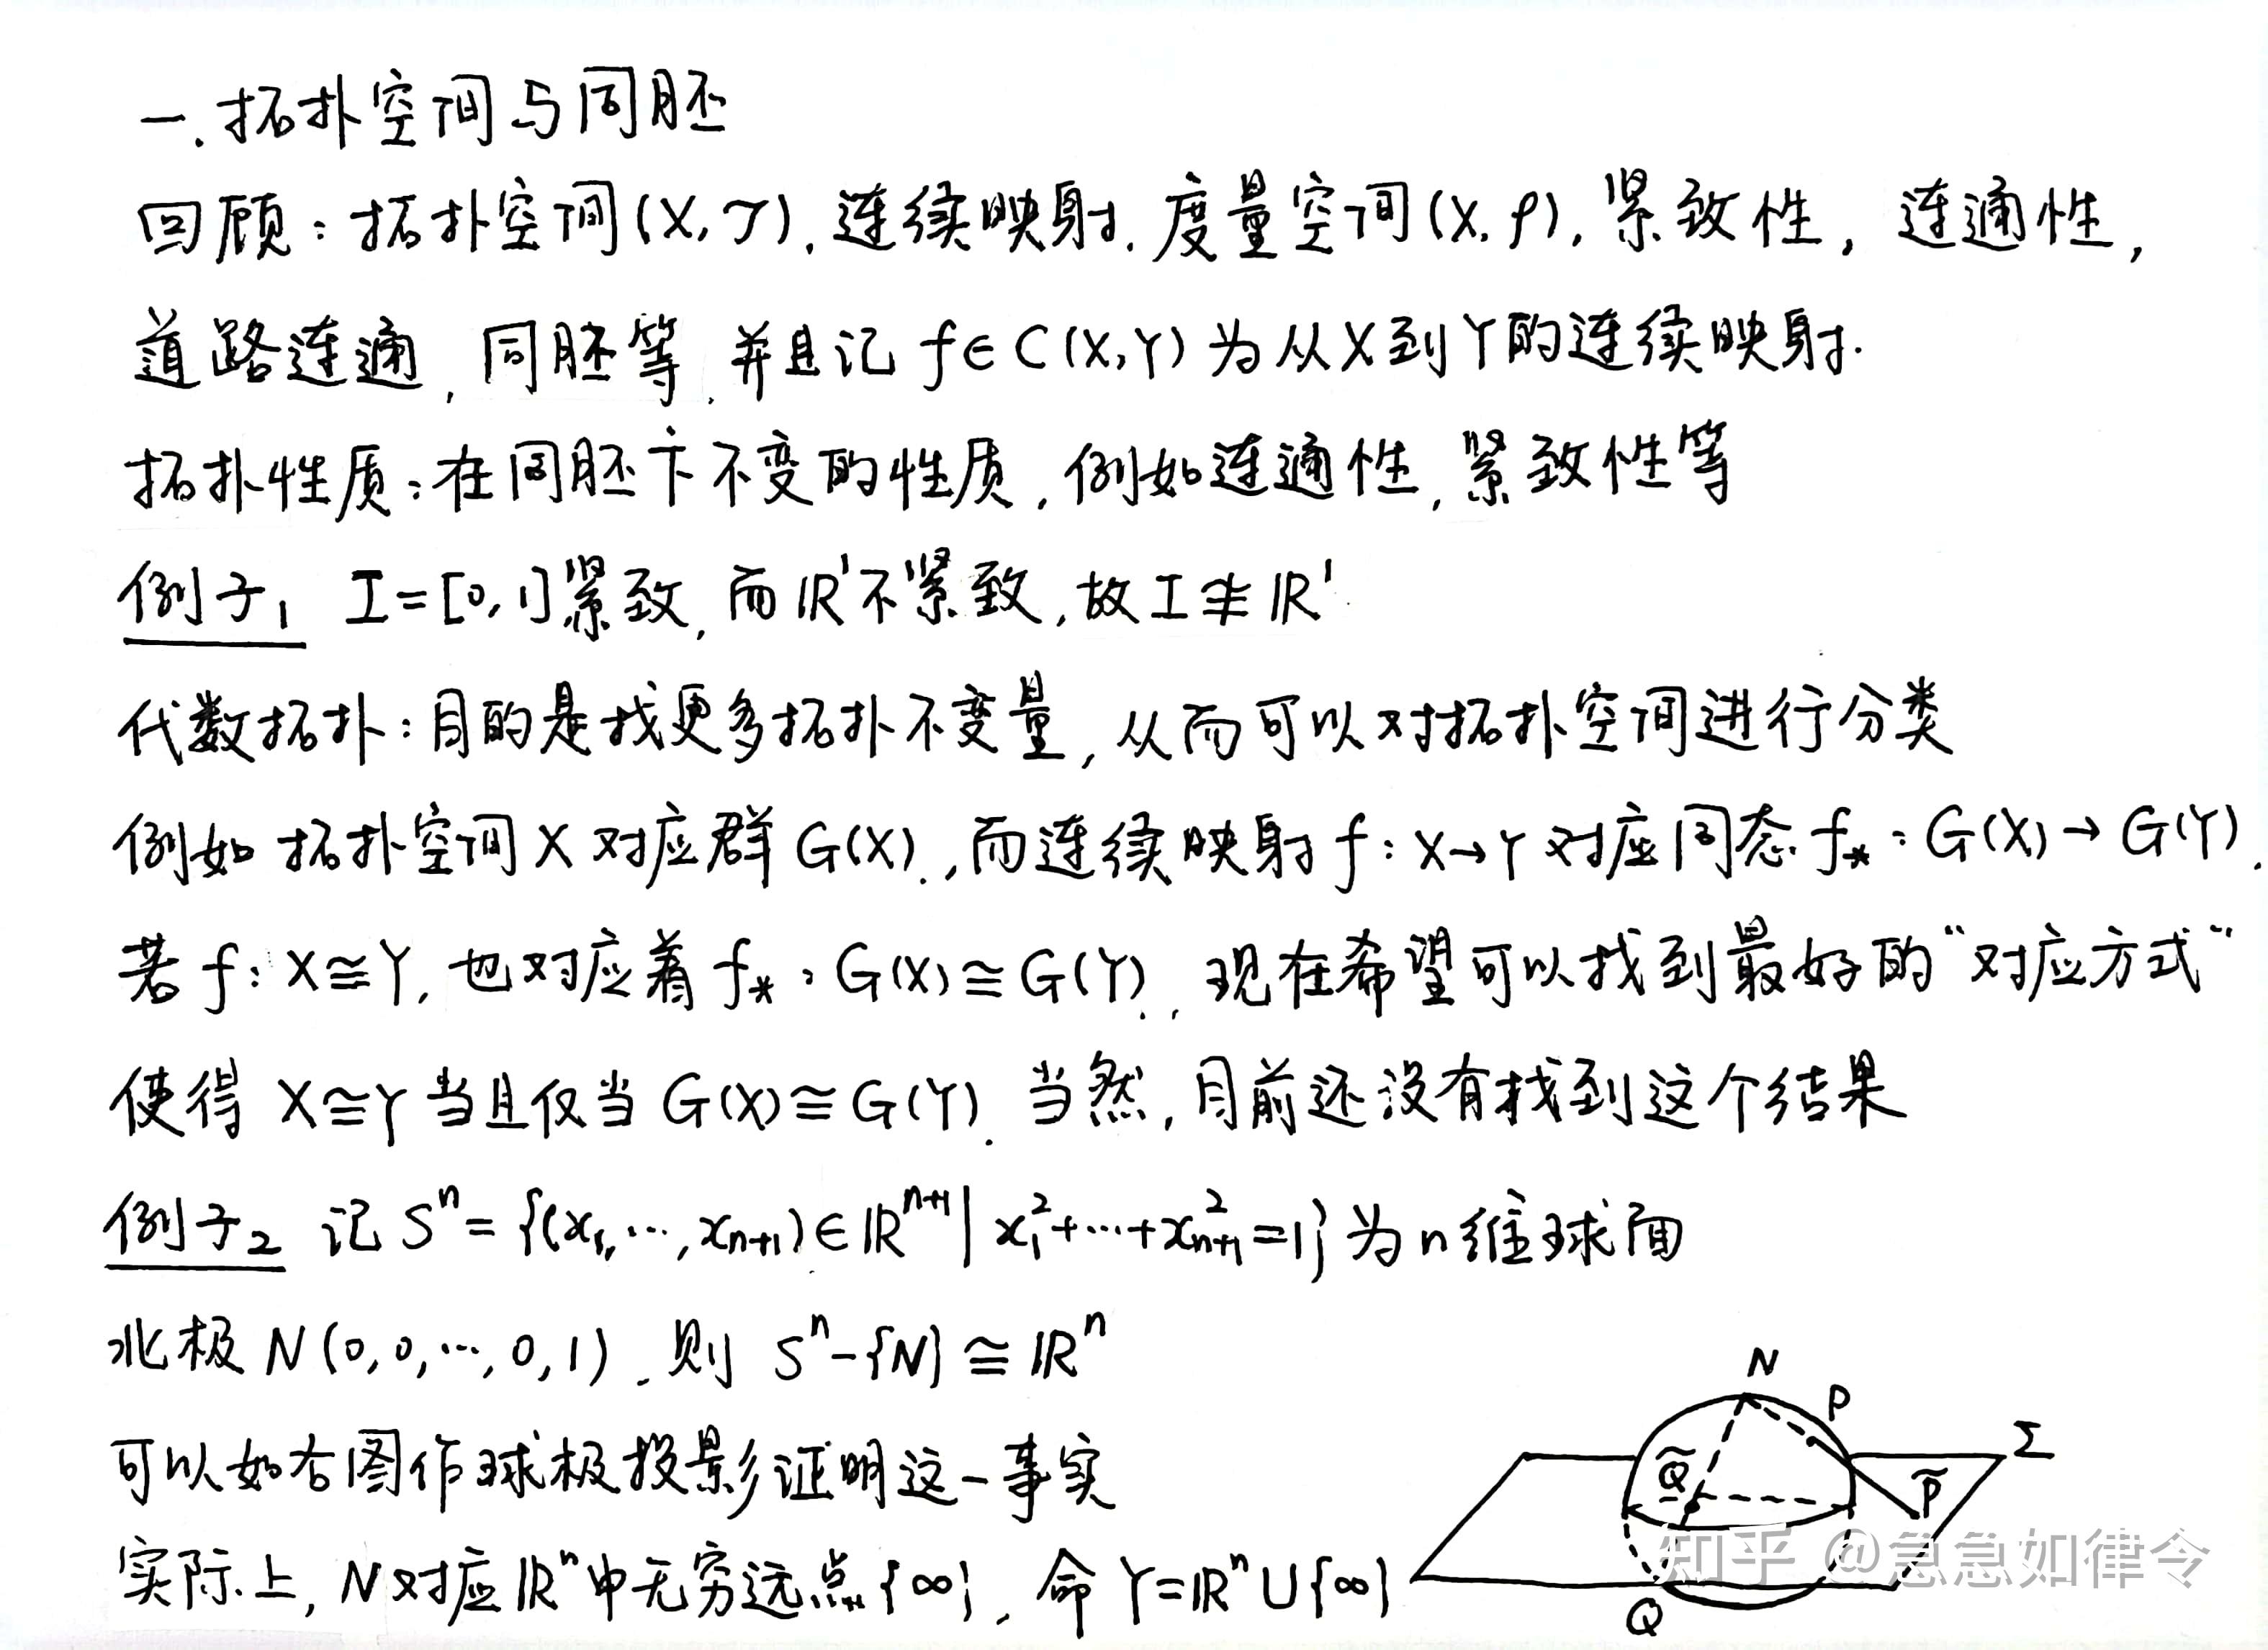 一. 拓扑空间与同胚
回顾: 拓扑空间(X, 𝒯), 连续映射, 度量空间(X, ρ), 紧致性, 连通性,
道路连通, 同胚等, 并且记 f∈C(X,Y) 为从X到Y的连续映射.
拓扑性质: 在同胚下不变的性质, 例如连通性, 紧致性等
例子1 I=[0,1]紧致, 而ℝ¹不紧致, 故I≇ℝ¹
代数拓扑: 目的是找更多拓扑不变量, 从而可以对拓扑空间进行分类
例如 拓扑空间X对应群G(X), 而连续映射f: X→Y对应同态f_*: G(X)→G(Y).
若f: X≅Y, 也对应着f_*: G(X)≅G(Y), 现在希望可以找到最好的“对应方式”
使得 X≅Y当且仅当G(X)≅G(Y). 当然, 目前还没有找到这个结果
例子2 记Sⁿ={(x₁,…,xₙ₊₁)∈ℝⁿ⁺¹|x₁²+…+xₙ₊₁²=1}为n维球面
北极N(0,0,…,0,1), 则 Sⁿ-{N}≅ℝⁿ
可以如右图作球极投影证明这一事实
实际上, N对应ℝⁿ中无穷远点{∞}, 命Y=ℝⁿ∪{∞}
N
P
Σ
Q̃
P̃
Q
知乎 @急急如律令